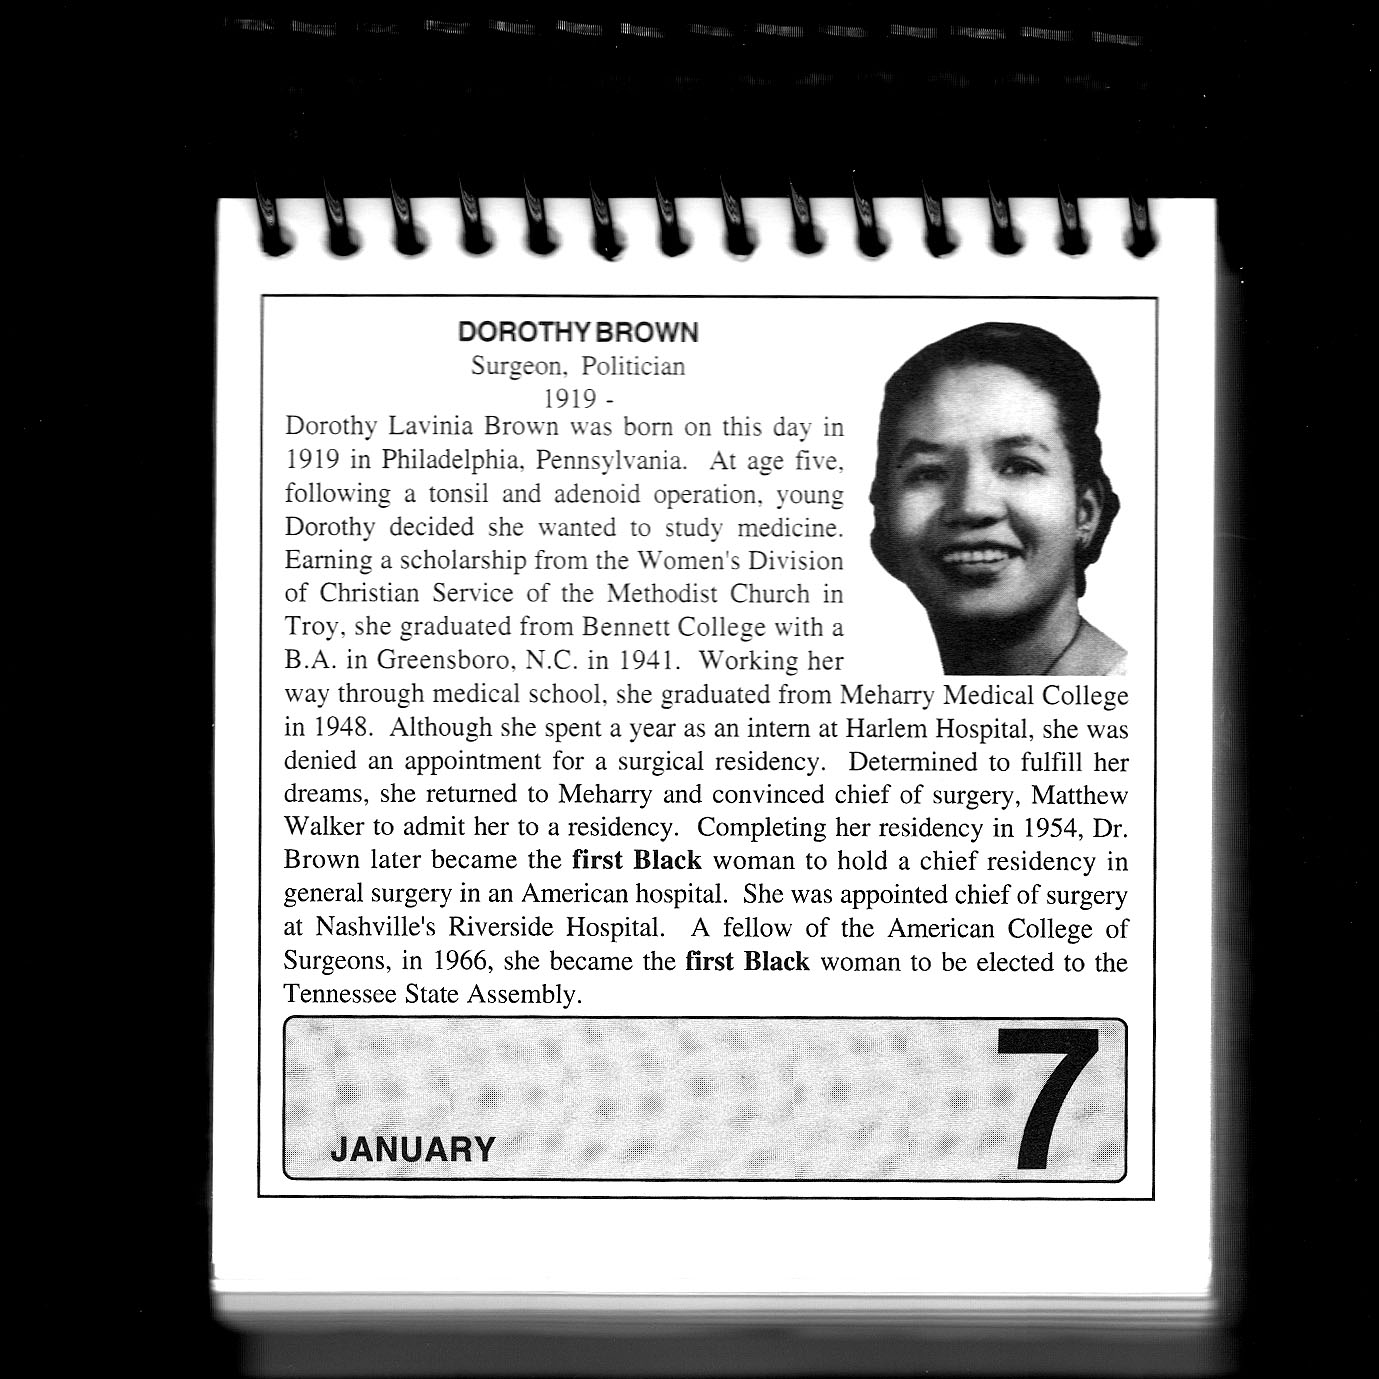 DOROTHY BROWN
Surgeon, Politician
1919 -
Dorothy Lavinia Brown was born on this day in
1919 in Philadelphia, Pennsylvania. At age five,
following a tonsil and adenoid operation, young
Dorothy decided she wanted to study medicine.
Earning a scholarship from the Women's Division
of Christian Service of the Methodist Church in
Troy, she graduated from Bennett College with a
B.A. in Greensboro, N.C. in 1941. Working her
way through medical school, she graduated from Meharry Medical College
in 1948. Although she spent a year as an intern at Harlem Hospital, she was
denied an appointment for a surgical residency. Determined to fulfill her
dreams, she returned to Meharry and convinced chief of surgery, Matthew
Walker to admit her to a residency. Completing her residency in 1954, Dr.
Brown later became the first Black woman to hold a chief residency in
general surgery in an American hospital. She was appointed chief of surgery
at Nashville's Riverside Hospital. A fellow of the American College of
Surgeons, in 1966, she became the first Black woman to be elected to the
Tennessee State Assembly.
JANUARY 7